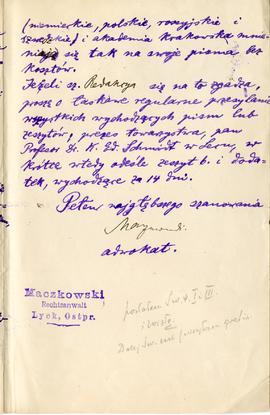 (niemieckie, polskie, rossyjskie i
szwedzkie) i akademia Krakowska mnie-
się tak na swoje pisma bez
kosztów.
Jeżeli sz. Redakcja się na to zgadza,
proszę o łaskawe regularne przesyłanie
wszystkich wychodzących pism lub
zeszytów, przez towarzystwa, pan
Profesor Dr. K. Ed. Schmidt w Lecu, w
krótce wtedy odeśle zeszyt 6. i doda-
tek, wychodzące za 14 dni.
Pełen najgłębszego szanowania
adwokat.
Maczkowski
Rechtsanwalt
Lyck, Ostpr.
posłałem Św. I. III.
i